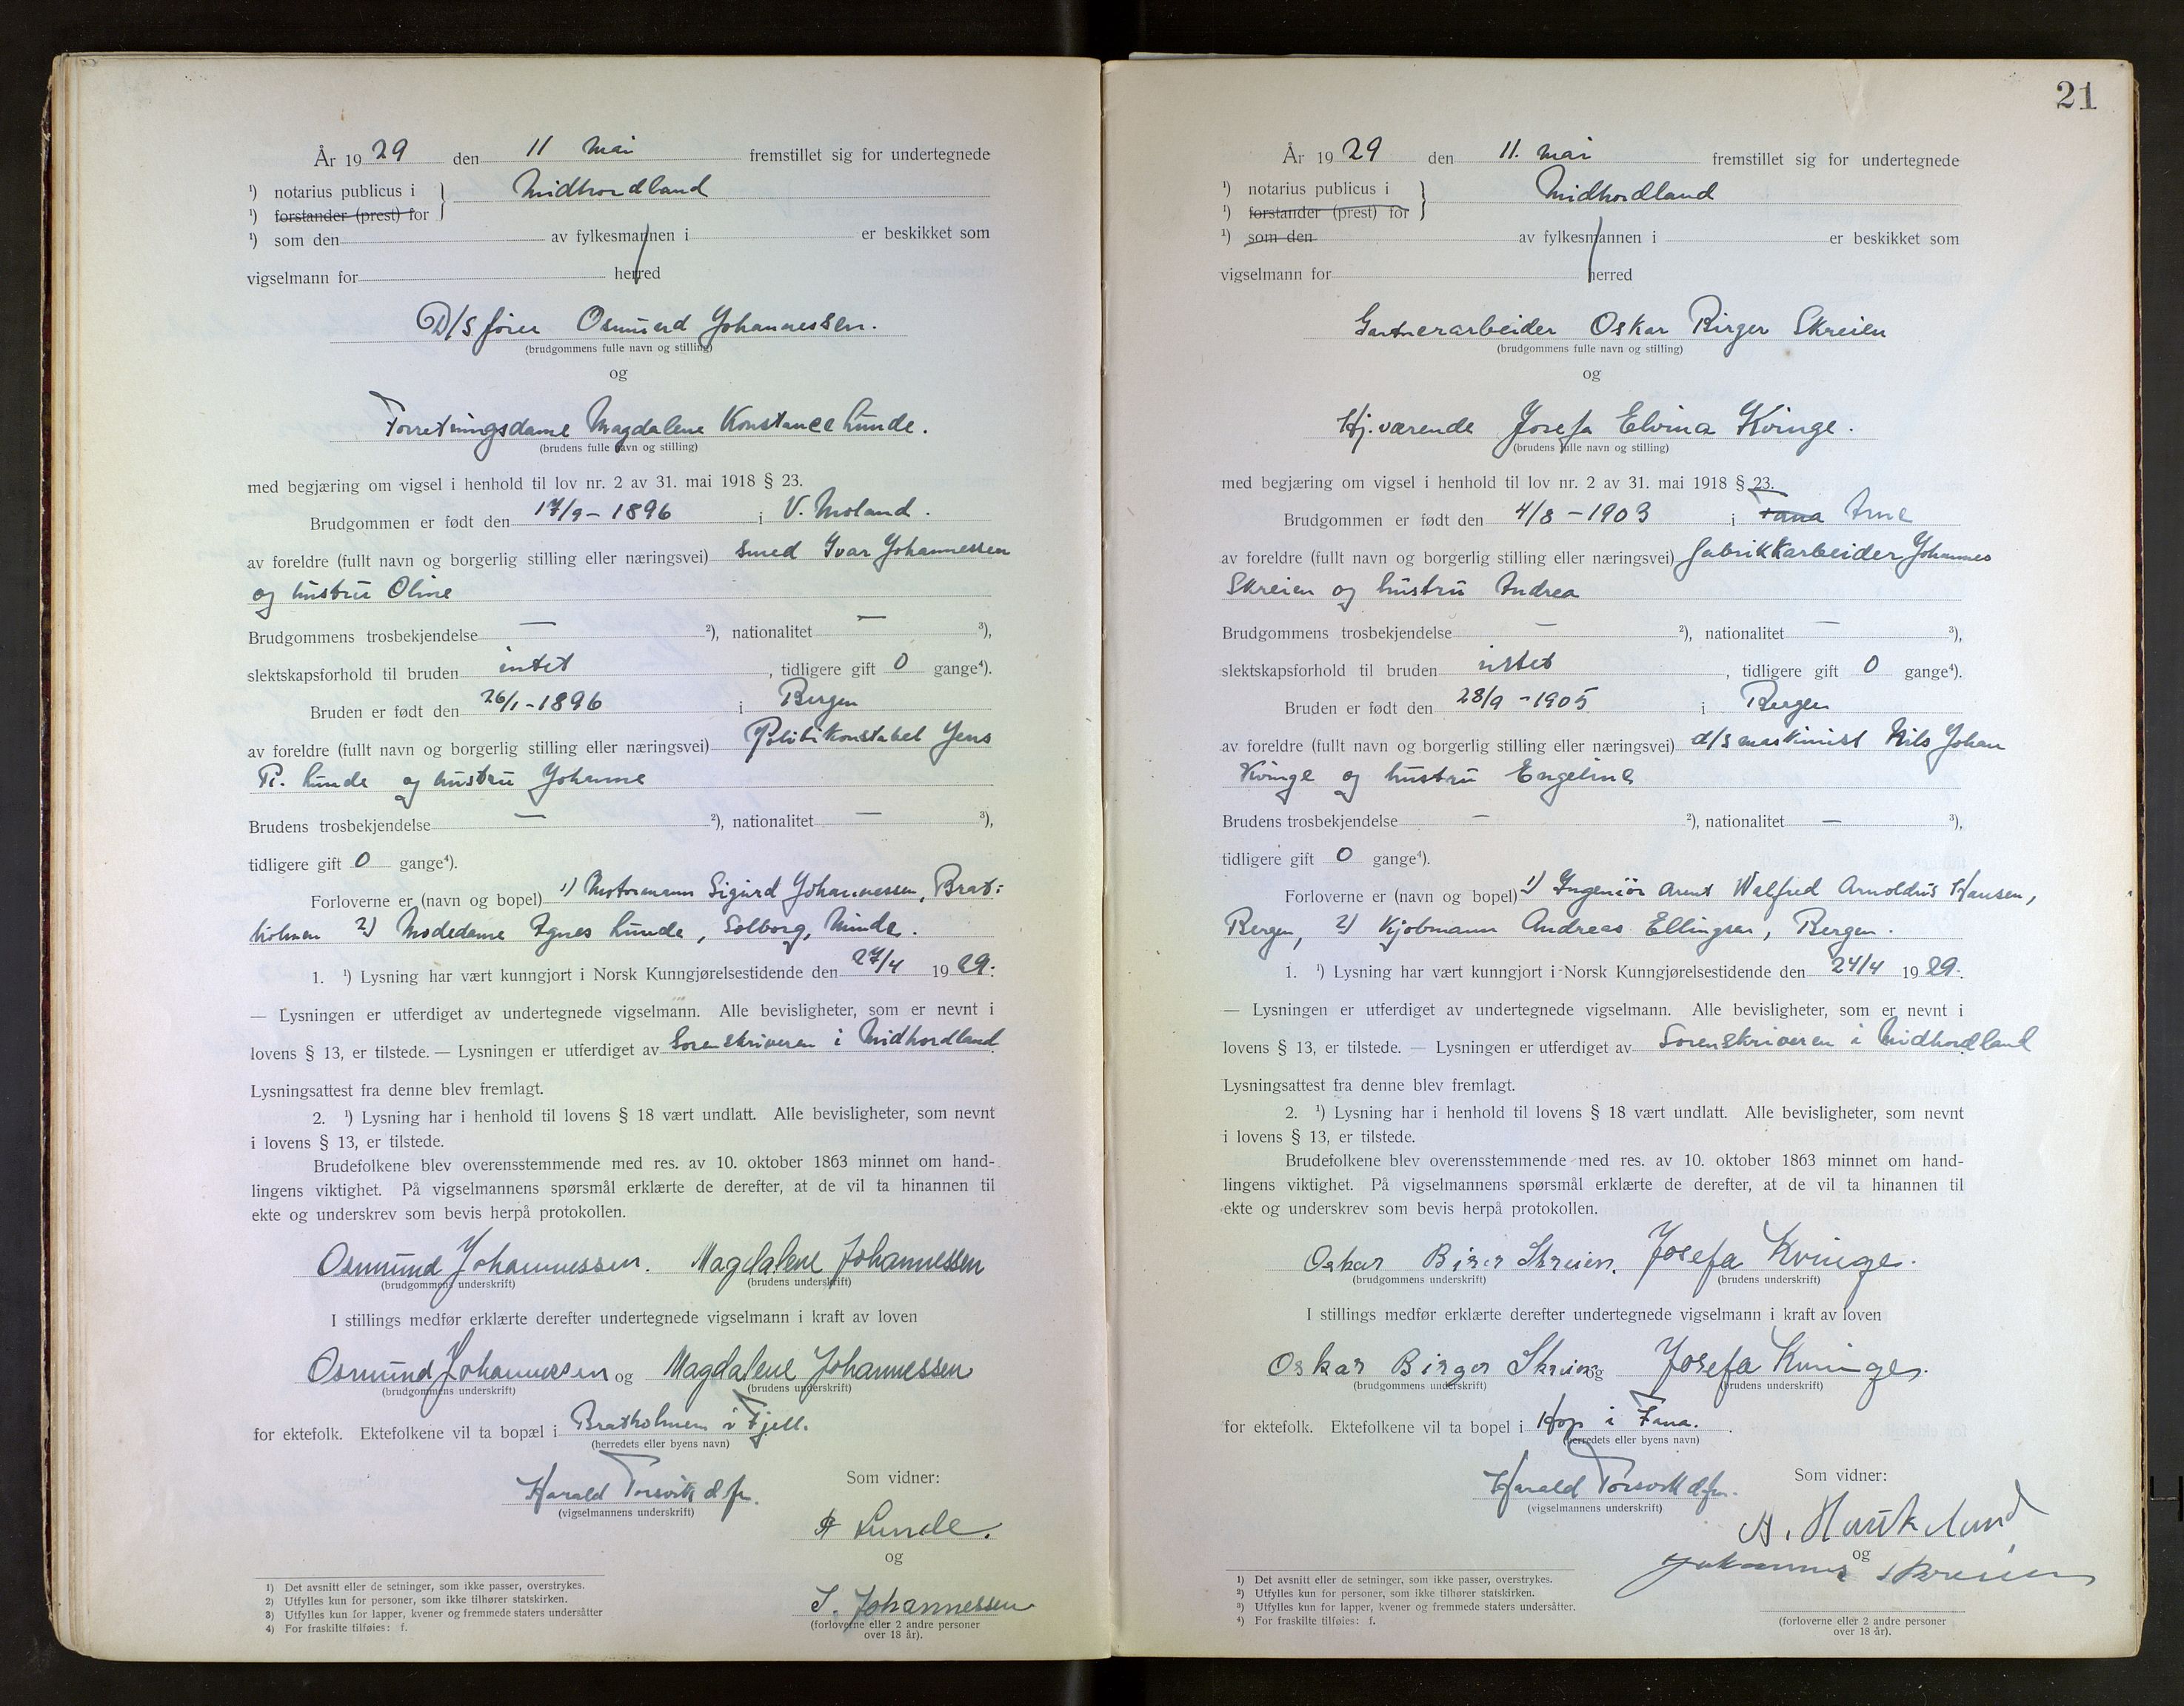 År 1929 den 11 Mai fremstillet sig for undertegnede
¹) notarius publicus i } Midhordland
¹) forstander (prest) for
¹) som den av fylkesmannen i er beskikket som
vigselmann for herred
D/S fører Osmund Johannessen.
(brudgommens fulle navn og stilling)
og
Forretningsdame Magdalene Konstance Lunde.
(brudens fulle navn og stilling)
med begjæring om vigsel i henhold til lov nr. 2 av 31. mai 1918 § 23.
Brudgommen er født den 17/9 - 1896 i V. Moland.
av foreldre (fullt navn og borgerlig stilling eller næringsvei) Smed Ivar Johannessen
og hustru Oline
Brudgommens trosbekjendelse — ²), nationalitet — ³),
slektskapsforhold til bruden intet, tidligere gift 0 gange⁴).
Bruden er født den 26/1 - 1896 i Bergen
av foreldre (fullt navn og borgerlig stilling eller næringsvei) Politikonstabel Jens
R. Lunde og hustru Johanne
Brudens trosbekjendelse — ²), nationalitet — ³),
tidligere gift 0 gange⁴).
Forloverne er (navn og bopel) 1) Motormann Sigurd Johannessen, Brat-
holmen 2) Modedame Agnes Lunde, Solborg, Minde.
1. ¹) Lysning har vært kunngjort i Norsk Kunngjørelsestidende den 27/4 1929.
— Lysningen er utferdiget av undertegnede vigselmann. Alle bevisligheter, som er nevnt i
lovens § 13, er tilstede. — Lysningen er utferdiget av Sorenskriveren i Midhordland
Lysningsattest fra denne blev fremlagt.
2. ¹) Lysning har i henhold til lovens § 18 vært undlatt. Alle bevisligheter, som nevnt
i lovens § 13, er tilstede.
Brudefolkene blev overensstemmende med res. av 10. oktober 1863 minnet om hand-
lingens viktighet. På vigselmannens spørsmål erklærte de derefter, at de vil ta hinannen til
ekte og underskrev som bevis herpå protokollen.
Osmund Johannessen. Magdalene Johannessen
(brudgommens underskrift) (brudens underskrift)
I stillings medfør erklærte derefter undertegnede vigselmann i kraft av loven
Osmund Johannessen og Magdalene Johannessen
(brudgommens underskrift) (brudens underskrift)
for ektefolk. Ektefolkene vil ta bopæl i Bratholmen i Fjell.
(herredets eller byens navn)
Harald Torsvik dfm.
(vigselmannens underskrift)
Som vidner:
A Lunde.
og
S. Johannessen
(forloverne eller 2 andre personer
over 18 år).
1) Det avsnitt eller de setninger, som ikke passer, overstrykes.
2) Utfylles kun for personer, som ikke tilhører statskirken.
3) Utfylles kun for lapper, kvener og fremmede staters undersåtter
4) For fraskilte tilføies: f.
21
År 1929 den 11. mai fremstillet sig for undertegnede
¹) notarius publicus i } Midhordland
¹) forstander (prest) for
¹) som den av fylkesmannen i er beskikket som
vigselmann for herred
Gartnerarbeider Oskar Birger Skreien
(brudgommens fulle navn og stilling)
og
Hj. værende Josefa Elvina Kvinge.
(brudens fulle navn og stilling)
med begjæring om vigsel i henhold til lov nr. 2 av 31. mai 1918 § 23.
Brudgommen er født den 4/8 - 1903 i Fana Arne
av foreldre (fullt navn og borgerlig stilling eller næringsvei) fabrikkarbeider Johannes
Skreien og hustru Andrea
Brudgommens trosbekjendelse — ²), nationalitet — ³),
slektskapsforhold til bruden intet, tidligere gift 0 gange⁴).
Bruden er født den 28/9 - 1905 i Bergen
av foreldre (fullt navn og borgerlig stilling eller næringsvei) d/s maskinist Nils Johan
Kvinge og hustru Engeline
Brudens trosbekjendelse — ²), nationalitet — ³),
tidligere gift 0 gange⁴).
Forloverne er (navn og bopel) 1) Ingeniør Arent Walfred Arnoldus Hansen,
Bergen, 2) Kjøbmann Andreas Ellingsen, Bergen.
1. ¹) Lysning har vært kunngjort i Norsk Kunngjørelsestidende den 24/4 1929.
— Lysningen er utferdiget av undertegnede vigselmann. Alle bevisligheter, som er nevnt i
lovens § 13, er tilstede. — Lysningen er utferdiget av Sorenskriveren i Midhordland
Lysningsattest fra denne blev fremlagt.
2. ¹) Lysning har i henhold til lovens § 18 vært undlatt. Alle bevisligheter, som nevnt
i lovens § 13, er tilstede.
Brudefolkene blev overensstemmende med res. av 10. oktober 1863 minnet om hand-
lingens viktighet. På vigselmannens spørsmål erklærte de derefter, at de vil ta hinannen til
ekte og underskrev som bevis herpå protokollen.
Oskar Birer Skreien. Josefa Kvinge.
(brudgommens underskrift) (brudens underskrift)
I stillings medfør erklærte derefter undertegnede vigselmann i kraft av loven
Oskar Birger Skreien og Josefa Kvinge.
(brudgommens underskrift) (brudens underskrift)
for ektefolk. Ektefolkene vil ta bopel i Hop i Fana.
(herredets eller byens navn)
Harald Torsvik dfm.
(vigselmannens underskrift)
Som vidner:
A. Haukeland
og
Johannes Skreien
(forloverne eller 2 andre personer
over 18 år).
1) Det avsnitt eller de setninger, som ikke passer, overstrykes.
²) Utfylles kun for personer, som ikke tilhører statskirken.
³) Utfylles kun for lapper, kvener og fremmede staters undersåtter.
⁴) For fraskilte tilføies: f.